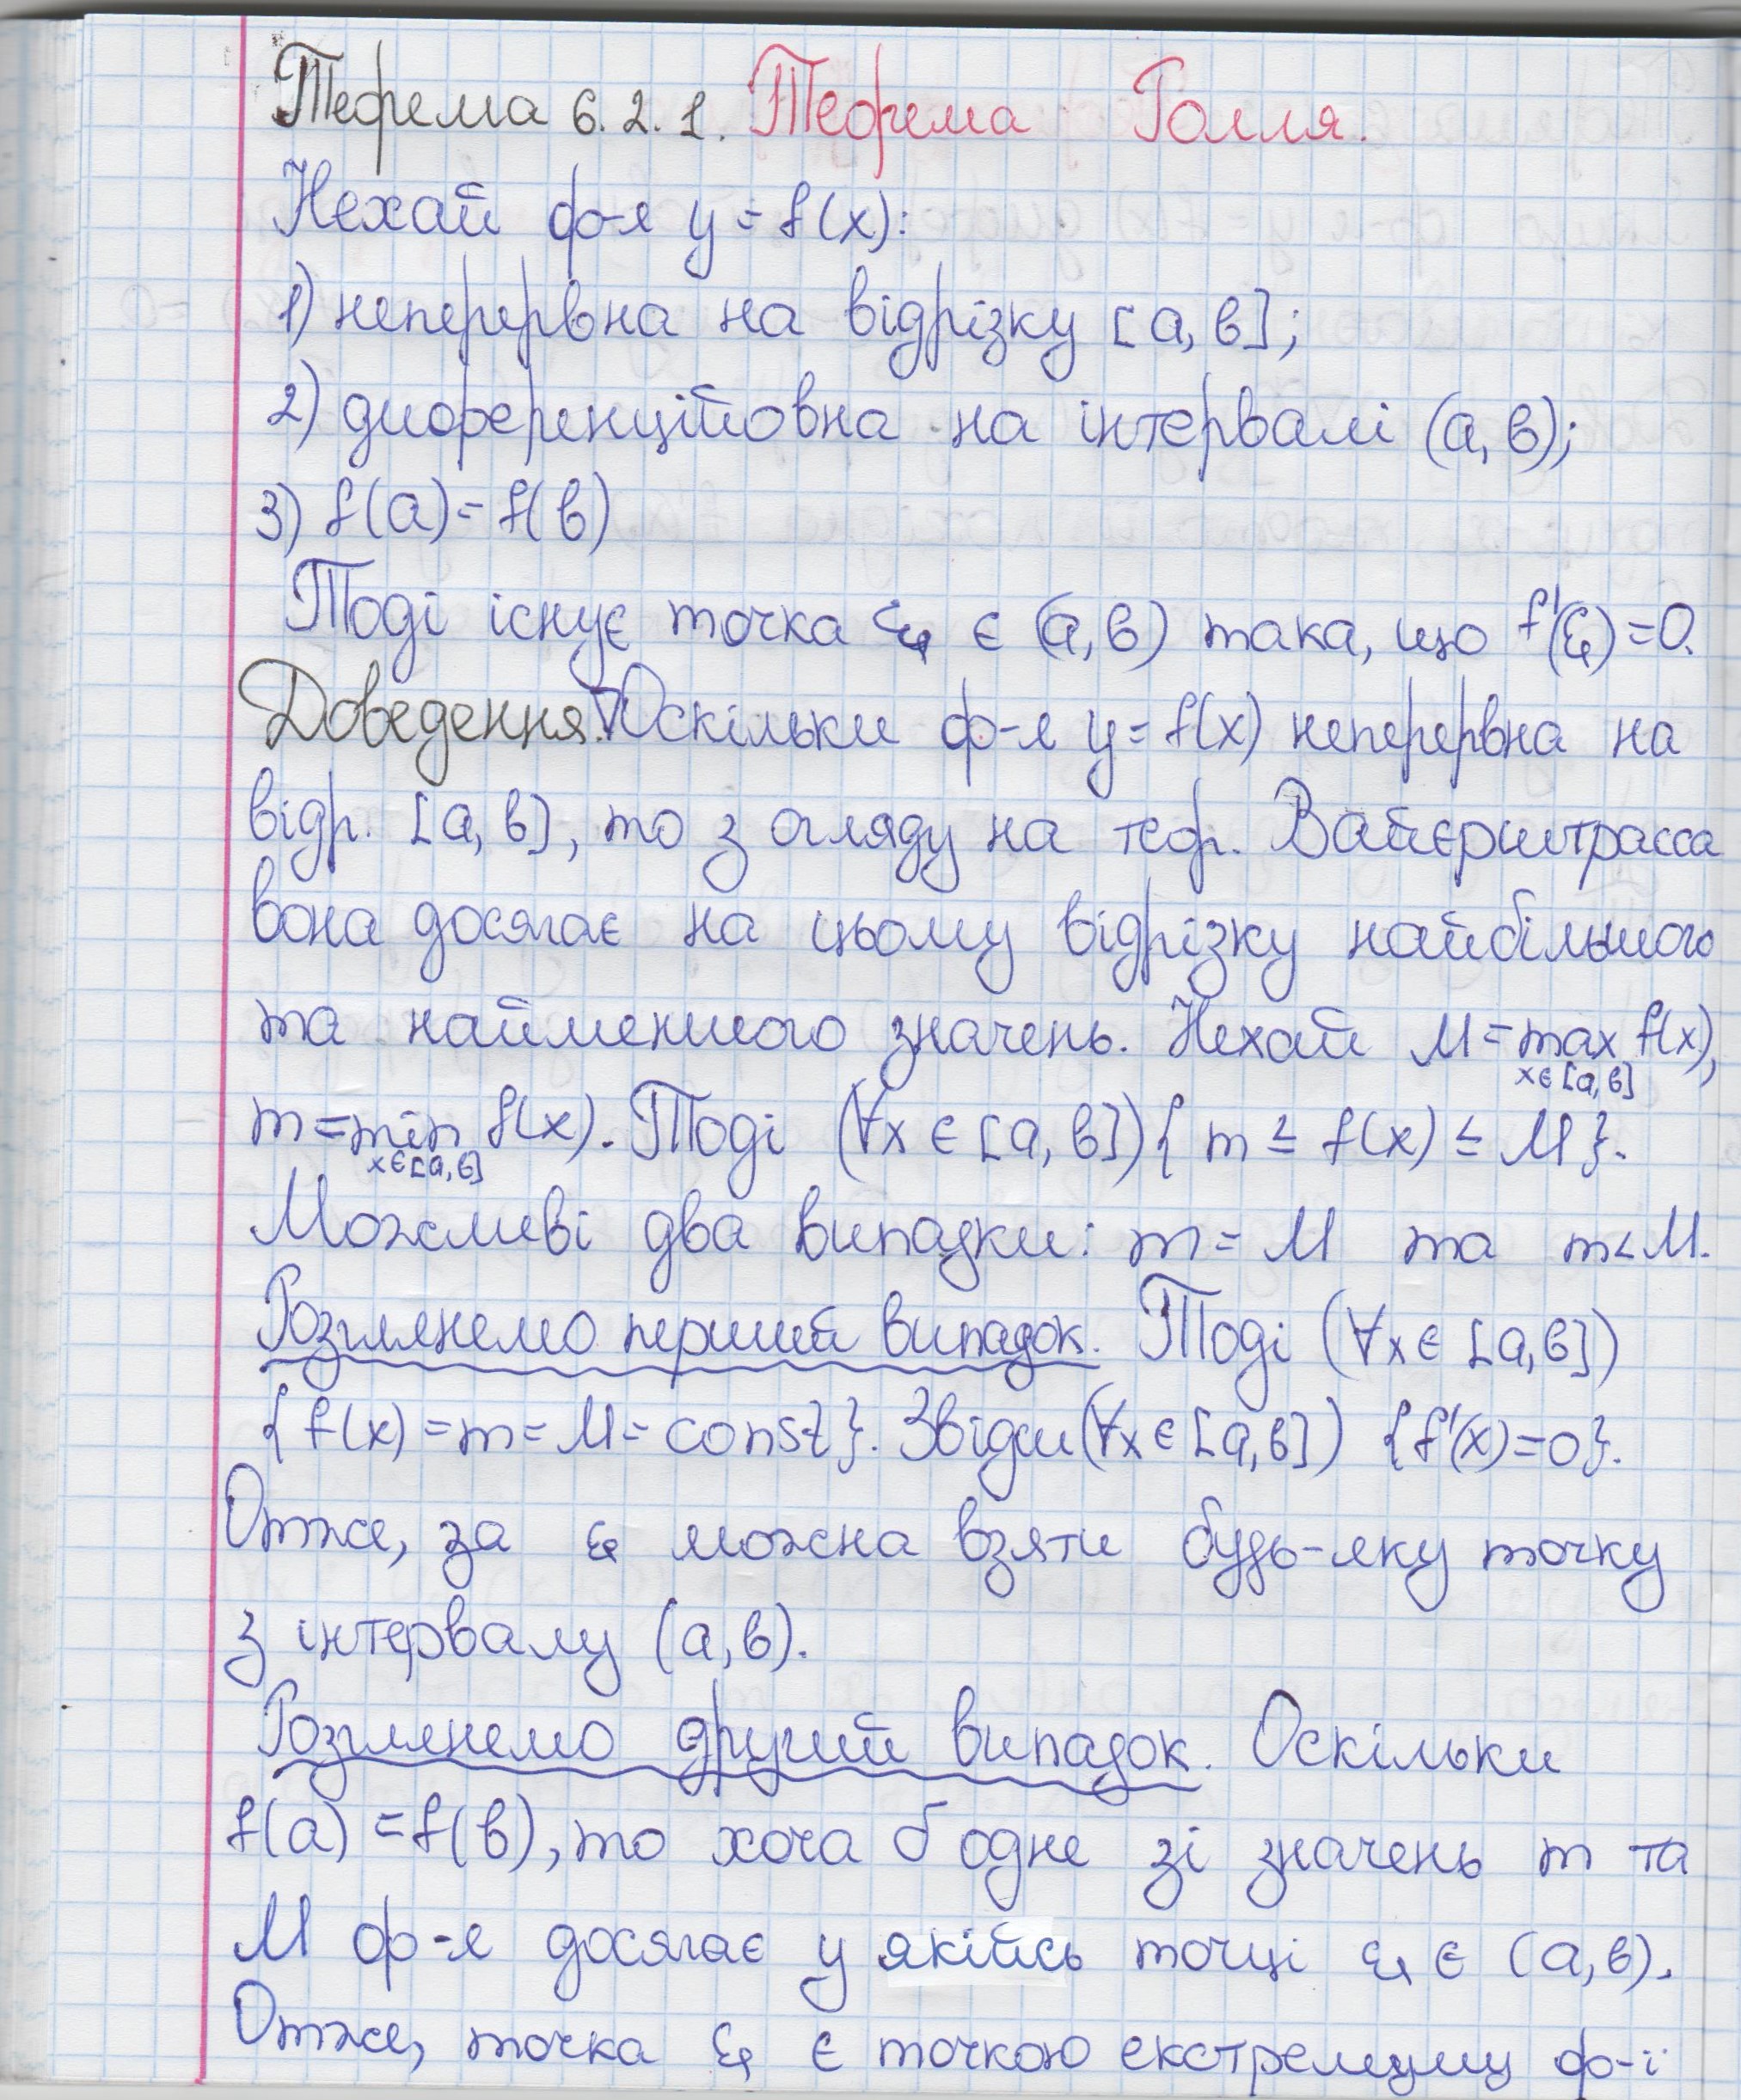 Теорема 6.2.1. Теорема Ролля.
Нехай ф-я y = f(x):
1) неперервна на відрізку [a, b];
2) диференційовна на інтервалі (a, b);
3) f(a) = f(b)
Тоді існує точка ξ ∈ (a, b) така, що f'(ξ) = 0.
Доведення. ∇ Оскільки ф-я y = f(x) неперервна на
відр. [a, b], то з огляду на теор. Вайєрштрасса
вона досягає на цьому відрізку найбільшого
та найменшого значень. Нехай M = max f(x),
x∈[a,b]
m = min f(x). Тоді (∀x ∈ [a, b]) { m ≤ f(x) ≤ M }.
x∈[a,b]
Можливі два випадки: m = M та m < M.
Розглянемо перший випадок. Тоді (∀x ∈ [a, b])
{ f(x) = m = M = const }. Звідси (∀x ∈ [a, b]) { f'(x) = 0 }.
Отже, за ξ можна взяти будь-яку точку
з інтервалу (a, b).
Розглянемо другий випадок. Оскільки
f(a) = f(b), то хоча б одне зі значень m та
M ф-я досягає у якійсь точці ξ ∈ (a, b).
Отже, точка ξ є точкою екстремуму ф-ї